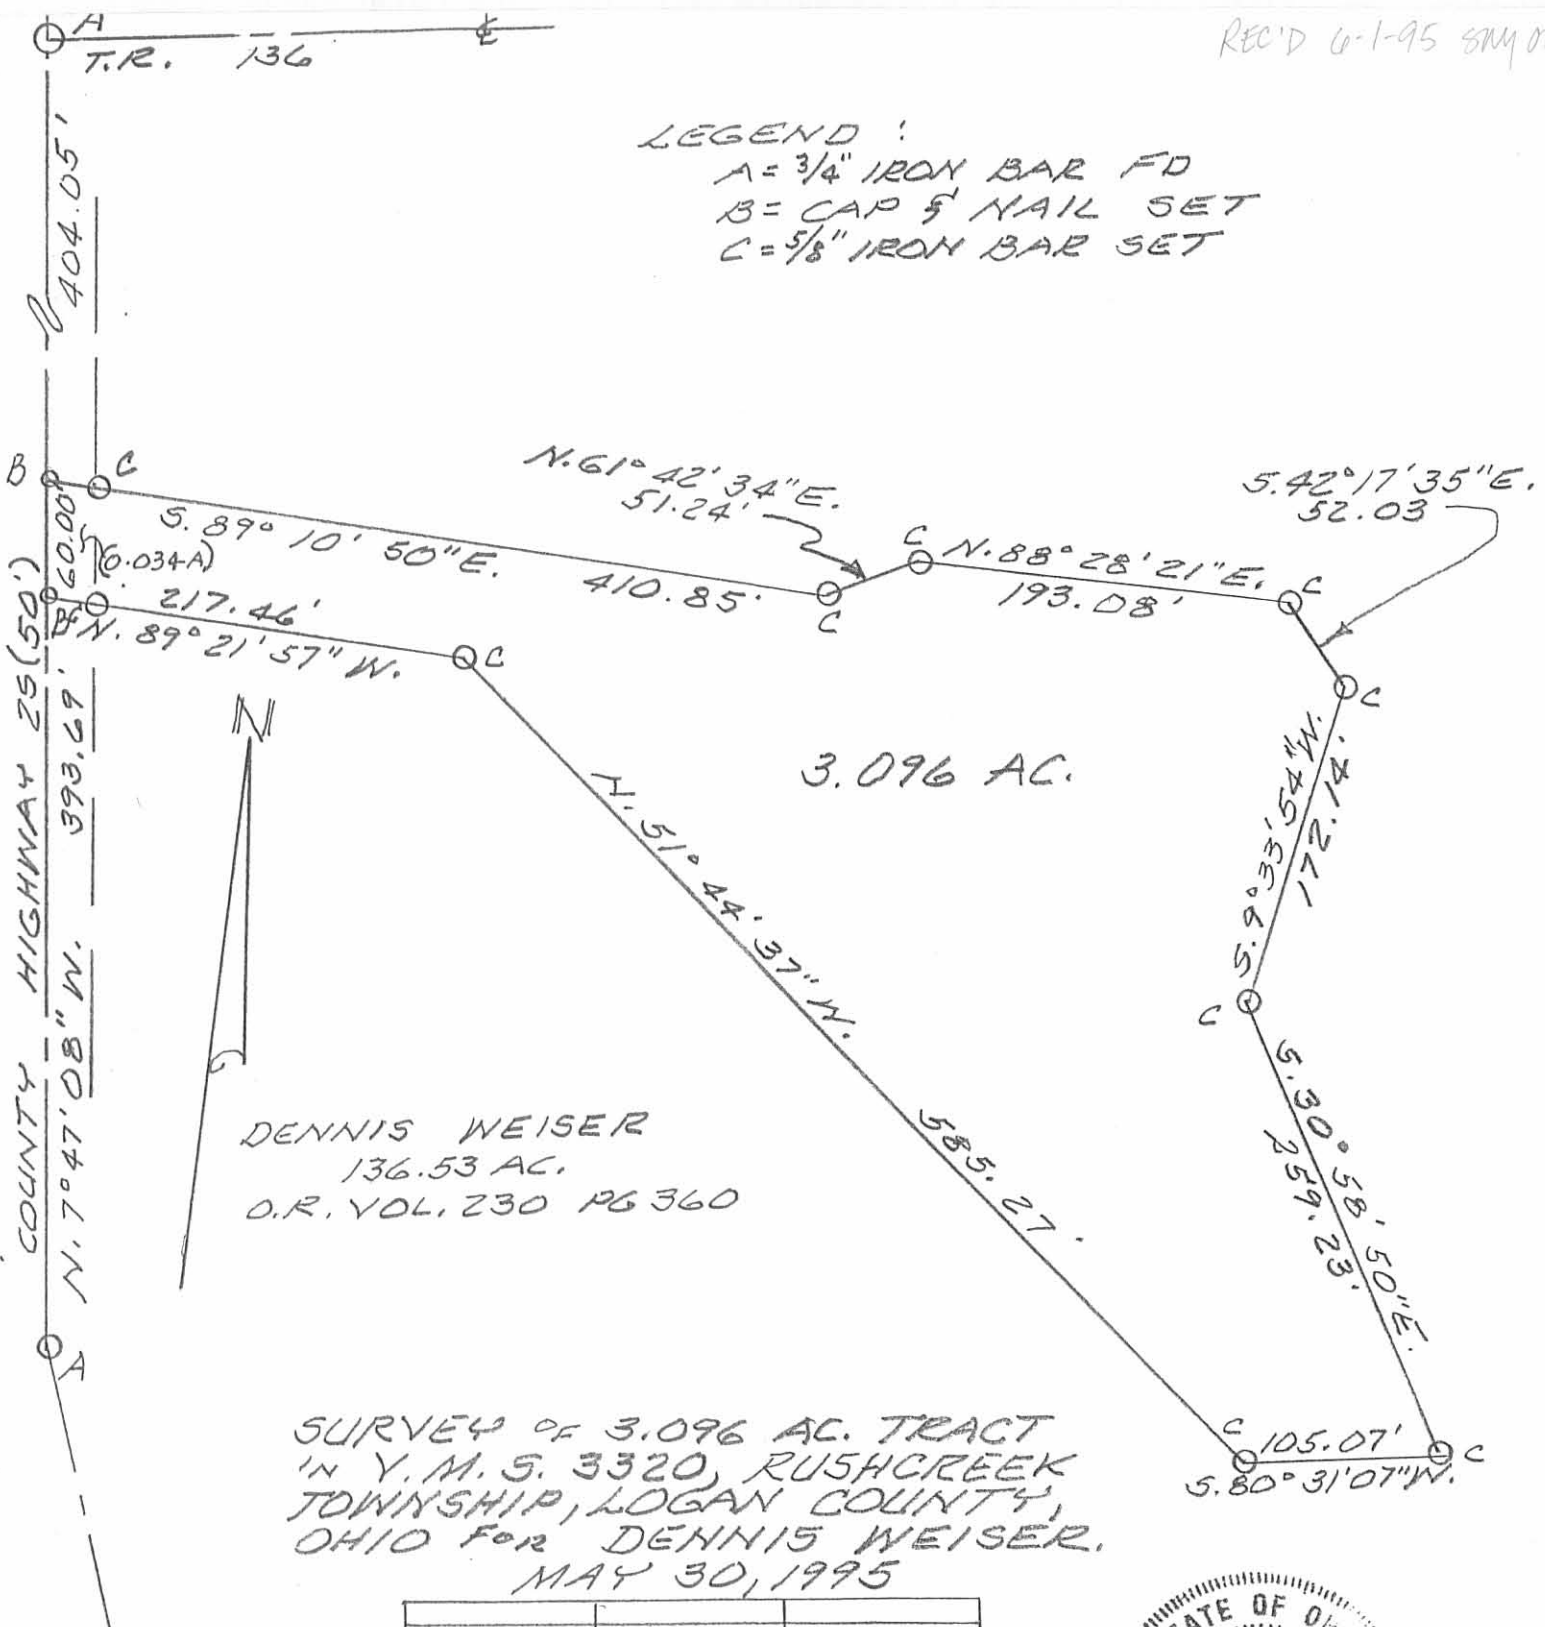 A
T.R. 136
℄
REC'D 6-1-95
404.05'
LEGEND :
A = 3/4" IRON BAR FD
B = CAP & NAIL SET
C = 5/8" IRON BAR SET
B
C
60.00'
(0.034A)
S. 89° 10' 50" E.
410.85'
N. 61° 42' 34" E.
51.24'
C
C
N. 88° 28' 21" E.
193.08'
C
S. 42° 17' 35" E.
52.03
C
B
C
217.46'
N. 89° 21' 57" W.
C
COUNTY HIGHWAY 25 (50')
N. 7° 47' 08" W. 393.69'
N
3.096 AC.
S. 9° 33' 54" W.
172.14'
C
N. 51° 44' 37" W.
585.27'
S. 30° 58' 50" E.
259.23'
DENNIS WEISER
136.53 AC.
O.R. VOL. 230 PG 360
A
C
105.07'
C
S. 80° 31' 07" W.
SURVEY OF 3.096 AC. TRACT
IN V.M.S. 3320, RUSHCREEK
TOWNSHIP, LOGAN COUNTY,
OHIO FOR DENNIS WEISER.
MAY 30, 1995
ATE OF O